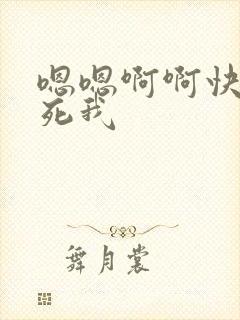 嗯嗯啊啊快
死我
舞月裳